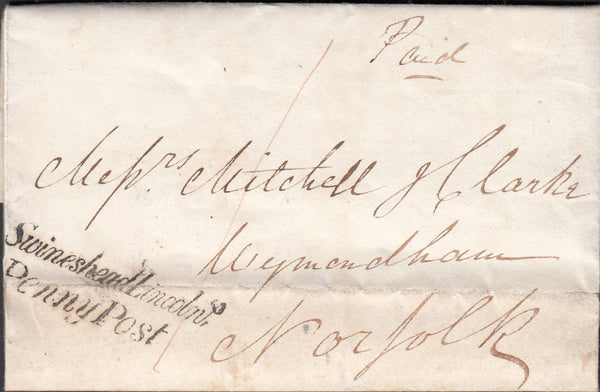 Paid
Messrs Mitchell & Clarke
Wymondham
Swineshead Lincolns.
Penny Post
Norfolk